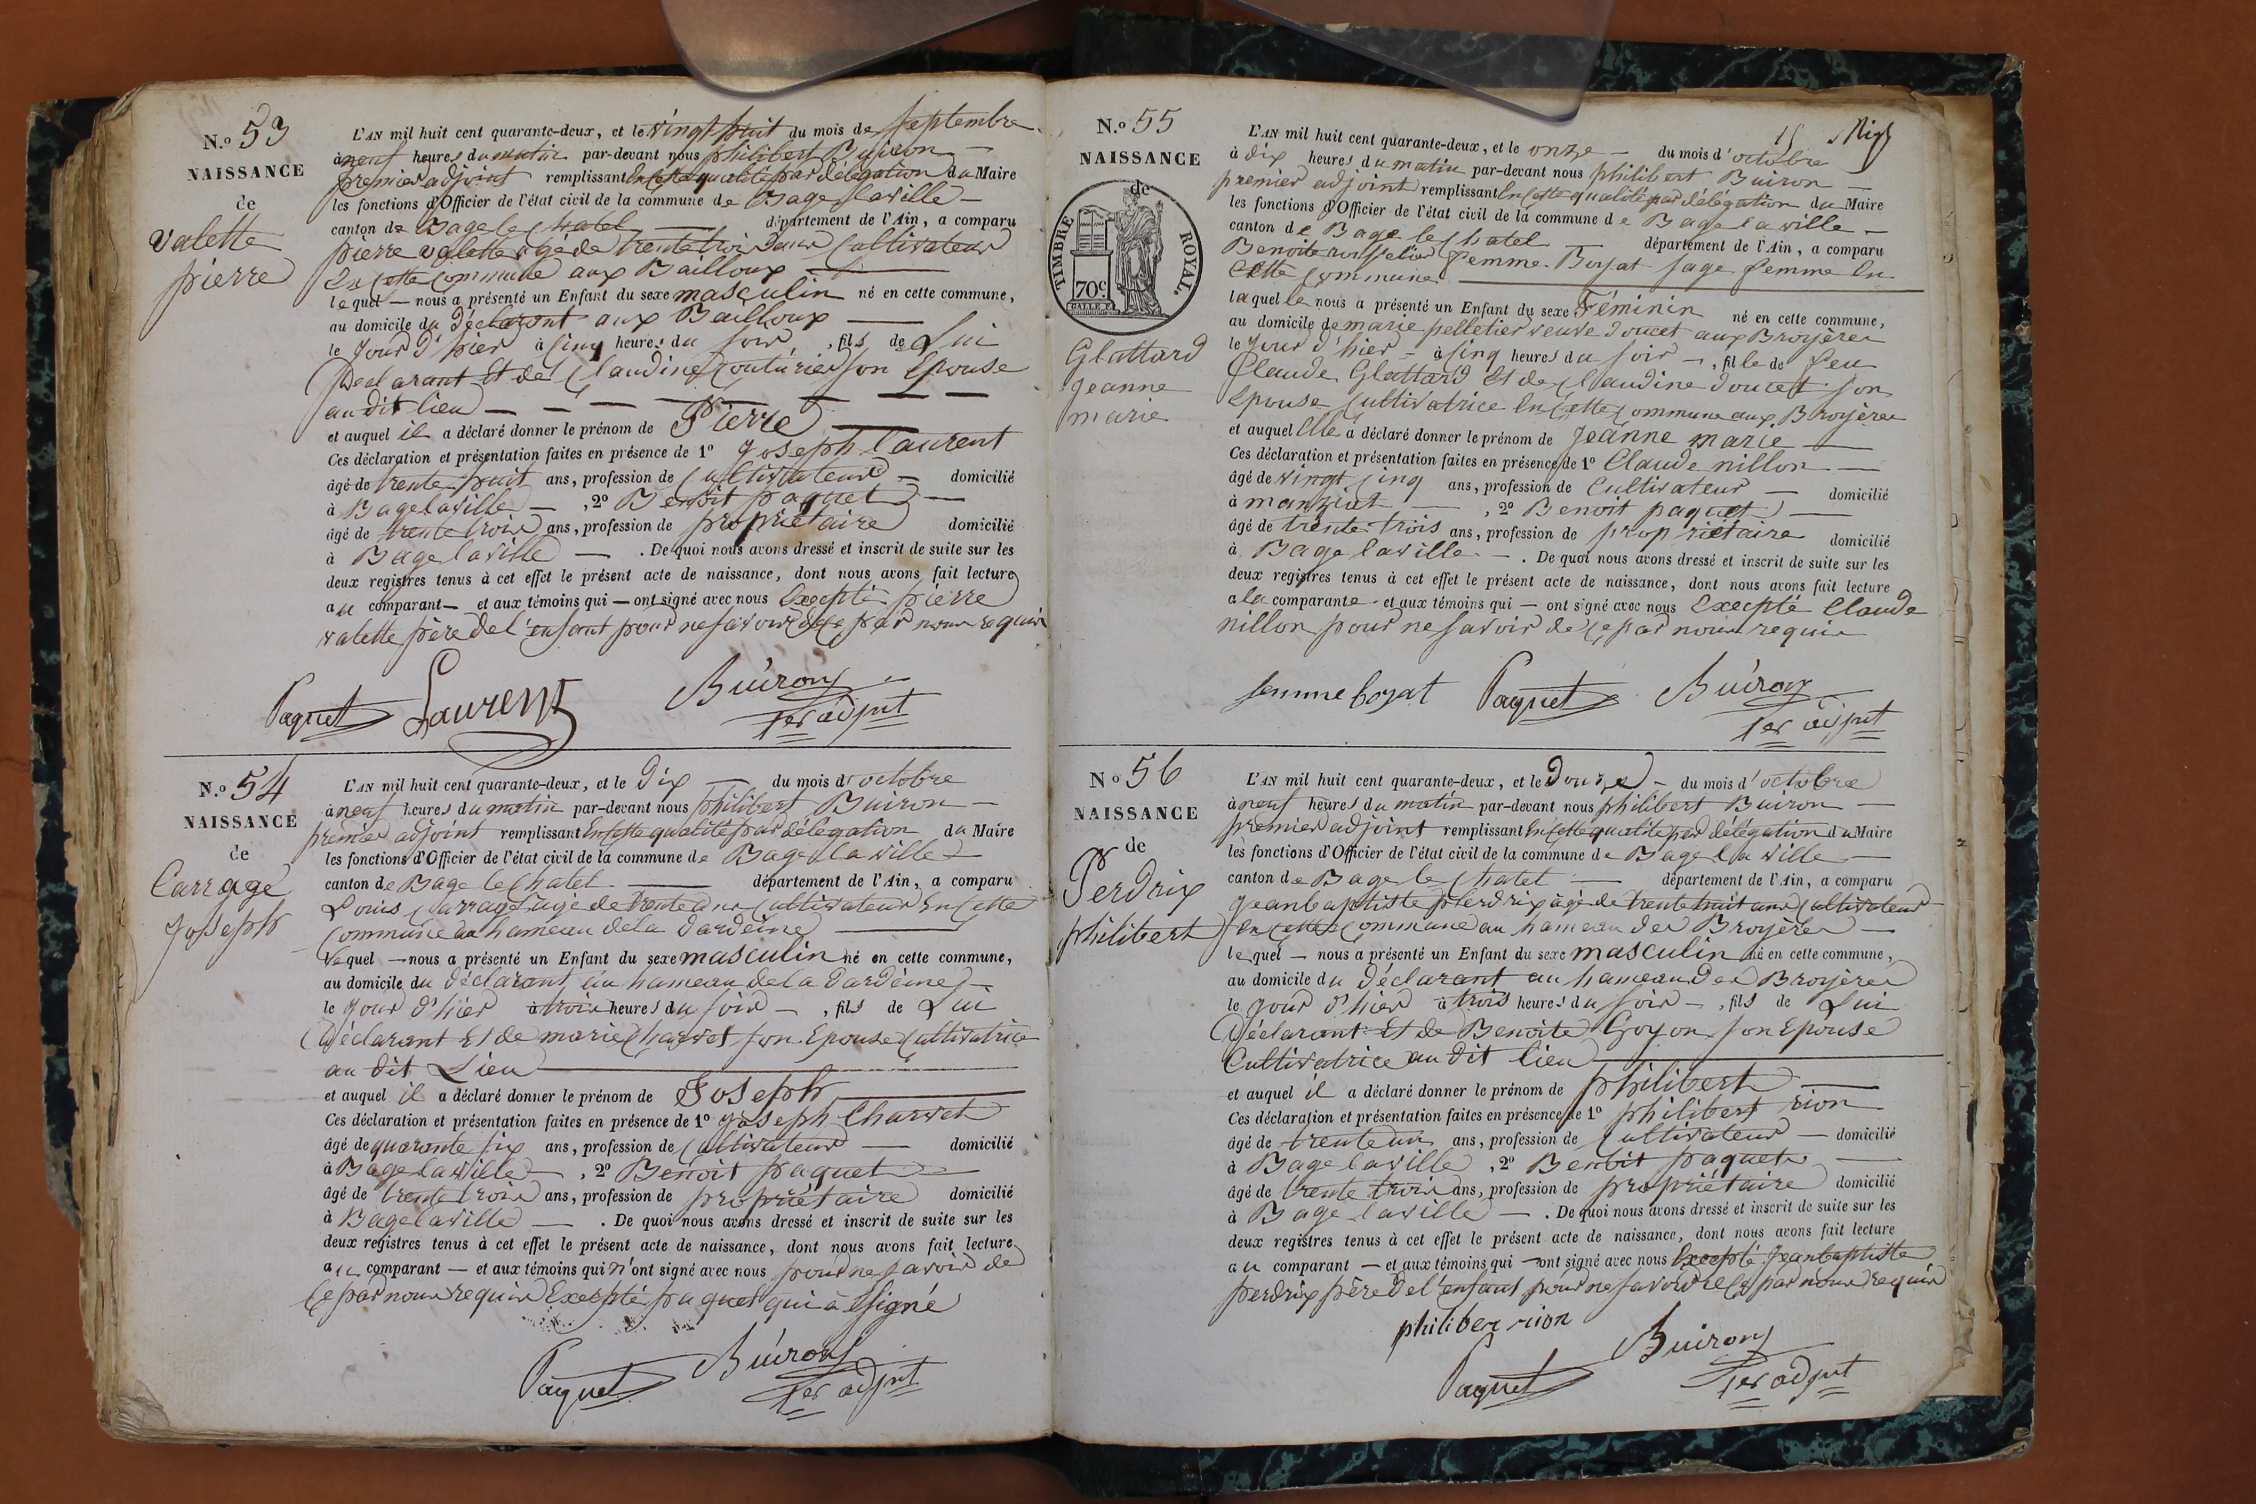 N.º 53
NAISSANCE
de
Valette
pierre
L'AN mil huit cent quarante-deux, et le vingt huit du mois de Septembre
à neuf heures du matin par-devant nous philibert Buiron
premier adjoint remplissant en cette qualité par délégation du Maire
les fonctions d'Officier de l'état civil de la commune de Bage la ville
canton de Bage le Chatel département de l'Ain, a comparu
pierre valette agé de trente trois ans Cultivateur
En cette Commune aux Bailloux
lequel nous a présenté un Enfant du sexe masculin né en cette commune,
au domicile du déclarant aux Bailloux
le Jour d'hier à Cinq heures du soir, fils de Lui
Declarant Et de Claudine Couturier son Epouse
au dit lieu
et auquel il a déclaré donner le prénom de Pierre
Ces déclaration et présentation faites en présence de 1º Joseph Laurent
âgé de trente huit ans, profession de Cultivateur domicilié
à Bage la ville, 2º Benoit paquet
âgé de trente trois ans, profession de propriétaire domicilié
à Bage la ville. De quoi nous avons dressé et inscrit de suite sur les
deux registres tenus à cet effet le présent acte de naissance, dont nous avons fait lecture
au comparant et aux témoins qui ont signé avec nous Excepté pierre
valette père de l'enfant pour ne savoir de ce par nous requis
Paquet Laurent Buiron
1er adjnt
N.º 54
NAISSANCE
de
Carrage
Joseph
L'AN mil huit cent quarante-deux, et le Dix du mois d'octobre
à neuf heures du matin par-devant nous philibert Buiron
premier adjoint remplissant En cette qualité par délégation du Maire
les fonctions d'Officier de l'état civil de la commune de Bage la ville
canton de Bage le Chatel département de l'Ain, a comparu
Louis Carrage agé de trente ans Cultivateur En Cette
Commune au hameau de la Dardeine
lequel nous a présenté un Enfant du sexe masculin né en cette commune,
au domicile du déclarant au hameau de la Dardeine
le Jour d'hier à trois heures du soir, fils de Lui
Déclarant Et de marie Charvet son Epouse Cultivatrice
au dit Lieu
et auquel il a déclaré donner le prénom de Joseph
Ces déclaration et présentation faites en présence de 1º Joseph Charvet
âgé de quarante six ans, profession de Cultivateur domicilié
à Bage la ville, 2º Benoit paquet
âgé de trente trois ans, profession de propriétaire domicilié
à Bage la ville. De quoi nous avons dressé et inscrit de suite sur les
deux registres tenus à cet effet le présent acte de naissance, dont nous avons fait lecture
au comparant et aux témoins qui n'ont signé avec nous pour ne savoir de
Ce par nous requis Excepté paquet qui a signé
Paquet Buiron
1er adjnt
N.º 55
NAISSANCE
de
TIMBRE ROYAL
70c
Glattard
Jeanne
marie
L'AN mil huit cent quarante-deux, et le onze du mois d'octobre
à dix heures du matin par-devant nous philibert Buiron
premier adjoint remplissant En cette qualité par délégation du Maire
les fonctions d'Officier de l'état civil de la commune de Bage la ville
canton de Bage le Chatel département de l'Ain, a comparu
Benoite femme Boyat sage femme En
Cette Commune
laquelle nous a présenté un Enfant du sexe Féminin né en cette commune,
au domicile de marie pelletier veuve doucet aux Broyères
le Jour d'hier à Cinq heures du soir, fille de feu
Claude Glattard Et de Claudine doucet son
Epouse Cultivatrice En Cette Commune aux Broyères
et auquel Elle a déclaré donner le prénom de Jeanne marie
Ces déclaration et présentation faites en présence de 1º Claude nillon
âgé de vingt cinq ans, profession de Cultivateur domicilié
à manziat, 2º Benoit paquet
âgé de trente trois ans, profession de propriétaire domicilié
à Bage la ville. De quoi nous avons dressé et inscrit de suite sur les
deux registres tenus à cet effet le présent acte de naissance, dont nous avons fait lecture
a la comparante et aux témoins qui ont signé avec nous Excepté Claude
nillon pour ne savoir de ce par nous requis
femme boyat Paquet Buiron
1er adjnt
Nº 56
NAISSANCE
de
Perdrix
philibert
L'AN mil huit cent quarante-deux, et le Douze du mois d'octobre
à neuf heures du matin par-devant nous philibert Buiron
premier adjoint remplissant En cette qualité par délégation du Maire
les fonctions d'Officier de l'état civil de la commune de Bage la ville
canton de Bage le Chatel département de l'Ain, a comparu
Jean baptiste perdrix âgé de trente huit ans Cultivateur
En cette Commune au hameau des Broyères
lequel nous a présenté un Enfant du sexe masculin né en cette commune,
au domicile du déclarant au hameau des Broyères
le Jour d'hier à trois heures du soir, fils de Lui
Déclarant Et de Benoite Goyon son Epouse
Cultivatrice au dit lieu
et auquel il a déclaré donner le prénom de philibert
Ces déclaration et présentation faites en présence de 1º philibert rion
âgé de trente un ans, profession de Cultivateur domicilié
à Bage la ville, 2º Benoit paquet
âgé de trente trois ans, profession de propriétaire domicilié
à Bage la ville. De quoi nous avons dressé et inscrit de suite sur les
deux registres tenus à cet effet le présent acte de naissance, dont nous avons fait lecture
au comparant et aux témoins qui ont signé avec nous Excepté Jean baptiste
perdrix père de l'enfant pour ne savoir de ce par nous requis
philiber rion
Paquet Buiron
1er adjnt